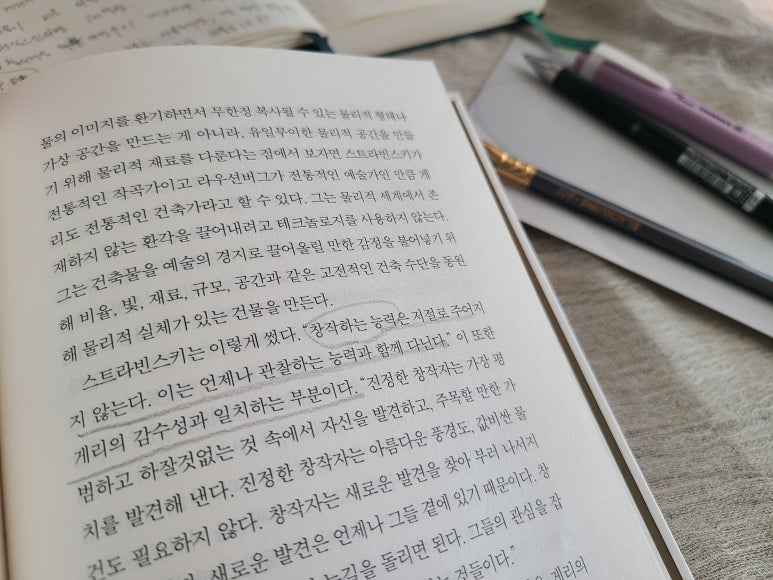 물의 이미지를 환기하면서 무한정 복사될 수 있는 물리적 형태나
가상 공간을 만드는 게 아니라, 유일무이한 물리적 공간을 만들
기 위해 물리적 재료를 다룬다는 점에서 보자면 스트라빈스키가
전통적인 작곡가이고 라우션버그가 전통적인 예술가인 만큼 게
리도 전통적인 건축가라고 할 수 있다. 그는 물리적 세계에서 존
재하지 않는 환각을 끌어내려고 테크놀로지를 사용하지 않는다.
그는 건축물을 예술의 경지로 끌어올릴 만한 감정을 불어넣기 위
해 비율, 빛, 재료, 규모, 공간과 같은 고전적인 건축 수단을 동원
해 물리적 실체가 있는 건물을 만든다.
스트라빈스키는 이렇게 썼다. “창작하는 능력은 저절로 주어지
지 않는다. 이는 언제나 관찰하는 능력과 함께 다닌다.” 이 또한
게리의 감수성과 일치하는 부분이다. “진정한 창작자는 가장 평
범하고 하잘것없는 것 속에서 자신을 발견하고, 주목할 만한 가
치를 발견해 낸다. 진정한 창작자는 아름다운 풍경도, 값비싼 물
건도 필요하지 않다. 창작자는 새로운 발견을 찾아 부러 나서지
새로운 발견은 언제나 그들 곁에 있기 때문이다. 창
눈길을 돌리면 된다. 그들의 관심을 잡
것들이다.”
게리의